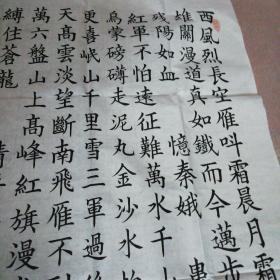 西風烈長空雁叫霜晨月霜
雄關漫道真如鐵而今邁步
残陽如血 憶秦娥 婁
紅軍不怕遠征難萬水千山
烏蒙磅礴走泥丸金沙水拍
更喜岷山千里雪三軍過後
天高雲淡望斷南飛雁不到
萬六盤山上高峰紅旗漫
縛住蒼龍 清